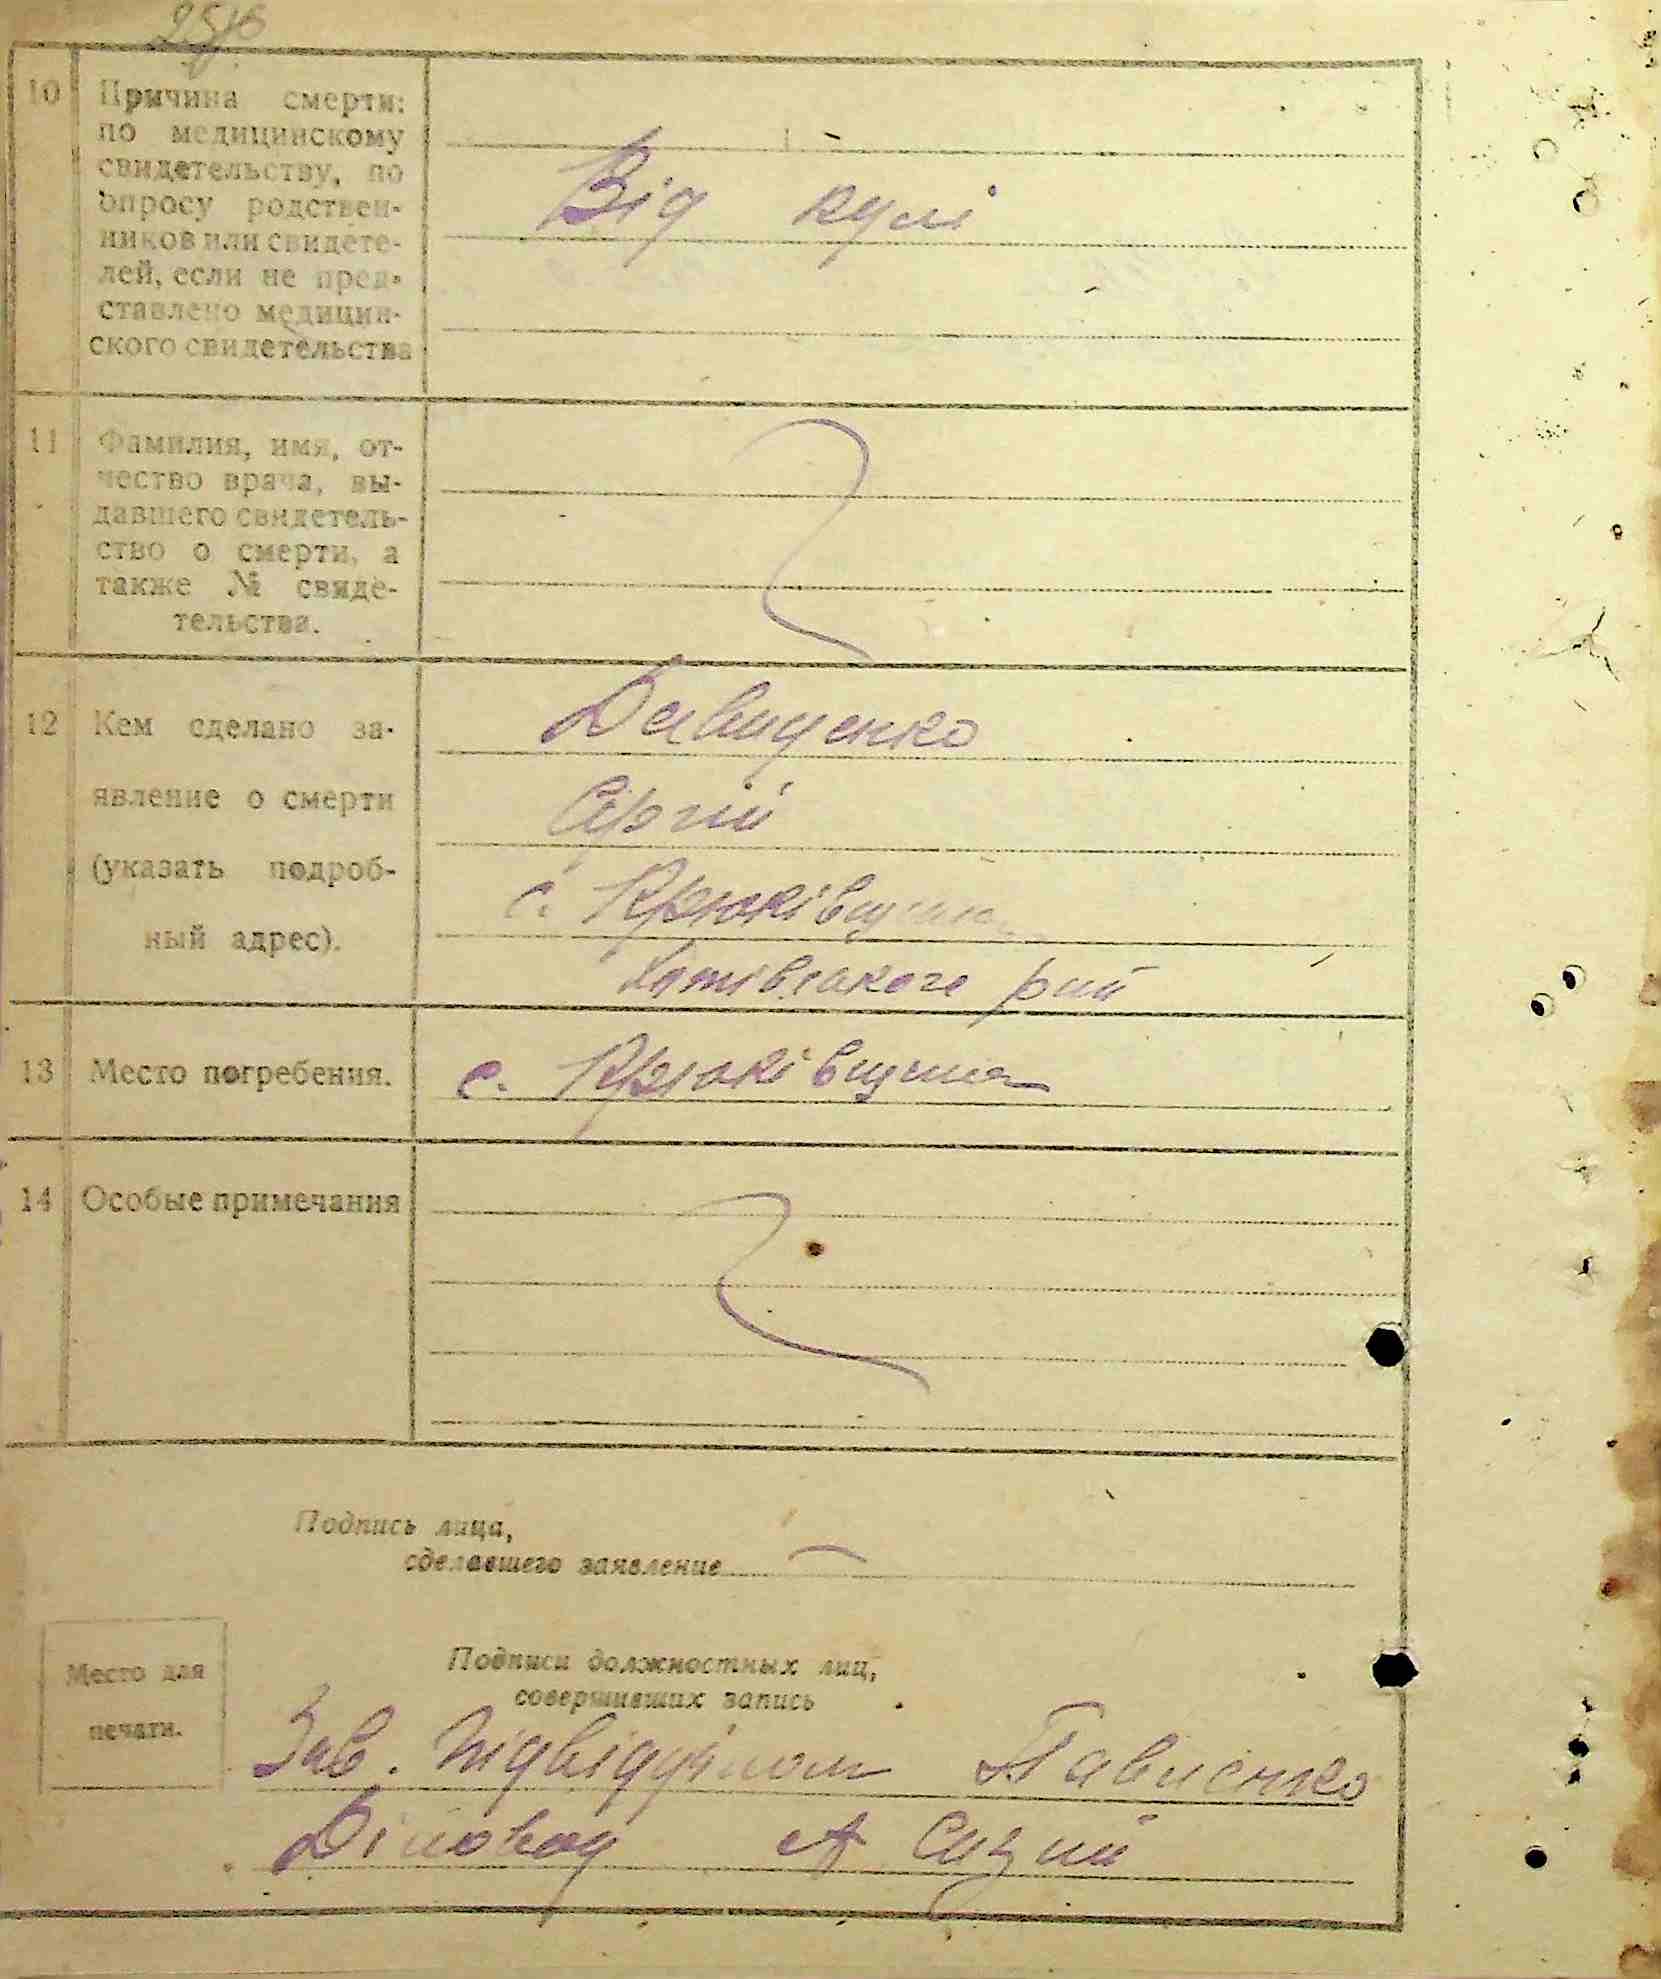 10 Причина смерти:
по медицинскому
свидетельству, по
опросу родствен-
ников или свидете-
лей, если не пред-
ставлено медицин-
ского свидетельства
Від кулі
11 Фамилия, имя, от-
чество врача, вы-
давшего свидетель-
ство о смерти, а
также № свиде-
тельства.
12 Кем сделано за-
явление о смерти
(указать подроб-
ный адрес).
Давиденко
Сергій
с. Крюківщина
Хотівського рай
13 Место погребения.
с. Крюківщина
14 Особые примечания
Подпись лица,
сделавшего заявление
Место для
печати.
Подписи должностных лиц,
совершивших запись
Зав. підвідділом
Діловод А